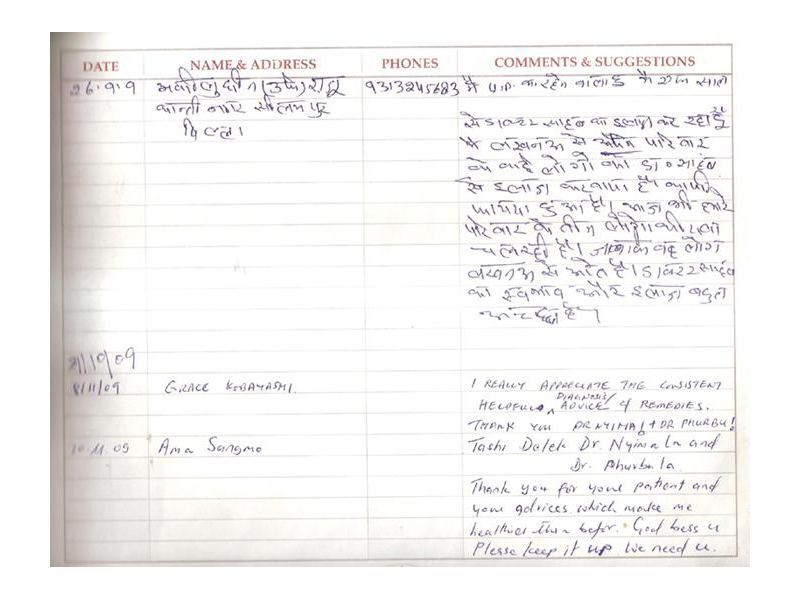 DATE NAME & ADDRESS PHONES COMMENTS & SUGGESTIONS
26.9.9 (उर्फ) राजू 9313245683 मै U.P. का रहने वाला हुँ मै
कान्ती नगर सीलमपुर
से डाक्टर साहब का इलाज कर रहा हूँ
मै लखनऊ से परिवार
के लोगो को डा० साहब
से इलाज करवाया है। काफी
फायदा हुआ है। आज भी हमारे
परिवार के तीन लोगो की दवा
चल रही है। वह लोग
लखनऊ से आते है। डाक्टर साहब
का स्वभाव और इलाज बहुत
अच्छा है।
/10/09
8/11/09 GRACE KOBAYASHI. I REALLY APPRECIATE THE CONSISTENT
HELPFUL DIAGNOSIS/ ADVICE & REMEDIES.
THANK YOU DR NYIMA! + DR PHURBU!
10.11.09 Ama Sangmo Tashi Delek Dr. Nyima la and
Dr. Phurbu la
Thank you for your patient and
your advices which make me
healthier then befor. God bess u
Please keep it up. We need u.